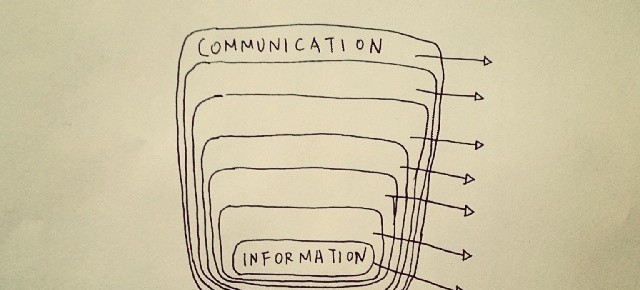 COMMUNICATION
INFORMATION